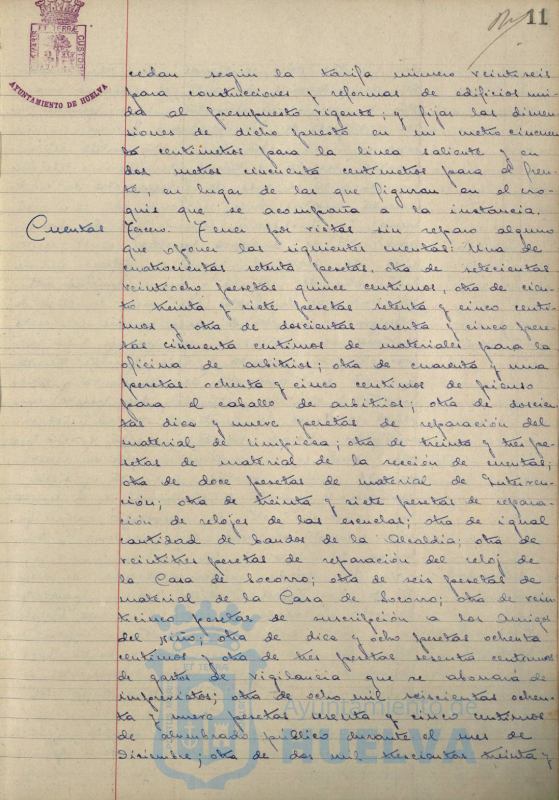 11
AYUNTAMIENTO DE HUELVA
cedan según la tarifa número veintseis
para construcciones y reformas de edificios uni-
da al presupuesto vigente; y fijar las dimen-
siones de dicho puesto en un metro cincuen
ta centímetros para la línea saliente y en
dos metros cincuenta centímetros para el fren-
te, en lugar de las que figuran en el cro-
quis que se acompaña a la instancia.
Cuentas
Tercero. Tener por vistas sin reparo alguno
que oponer las siguientes cuentas: Una de
cuatrocientas setenta pesetas, otra de setecientas
veintiocho pesetas quince centimos, otra de cien-
to treinta y siete pesetas setenta y cinco centi-
mos y otra de doscientas sesenta y cinco pese-
tas cincuenta centimos de materiales para la
oficina de arbitrios; otra de cuarenta y una
pesetas ochenta y cinco centimos de pienso
para el caballo de arbitrios; otra de doscien
tas diez y nueve pesetas de reparación del
material de limpieza; otra de treinta y tres pe-
setas de material de la sección de cuentas;
otra de doce pesetas de material de Interven-
ción; otra de treinta y siete pesetas de repara-
ción de relojes de las escuelas; otra de igual
cantidad de bandos de la Alcaldia; otra de
veintitres pesetas de reparación del reloj de
la Casa de Socorro; otra de seis pesetas de
material de la Casa de Socorro; otra de vein
ticinco pesetas de suscripción a los Amigos
del niño; otra de diez y ocho pesetas ochenta
centimos y otra de tres pesetas sesenta centimos
de gastos de vigilancia que se abonará de
imprevistos; otra de ocho mil seiscientas ochen-
ta y nueve pesetas sesenta y cinco centimos
de alumbrado público durante el mes de
Diciembre; otra de dos mil trescientas treinta y
Ayuntamiento de
HUELVA